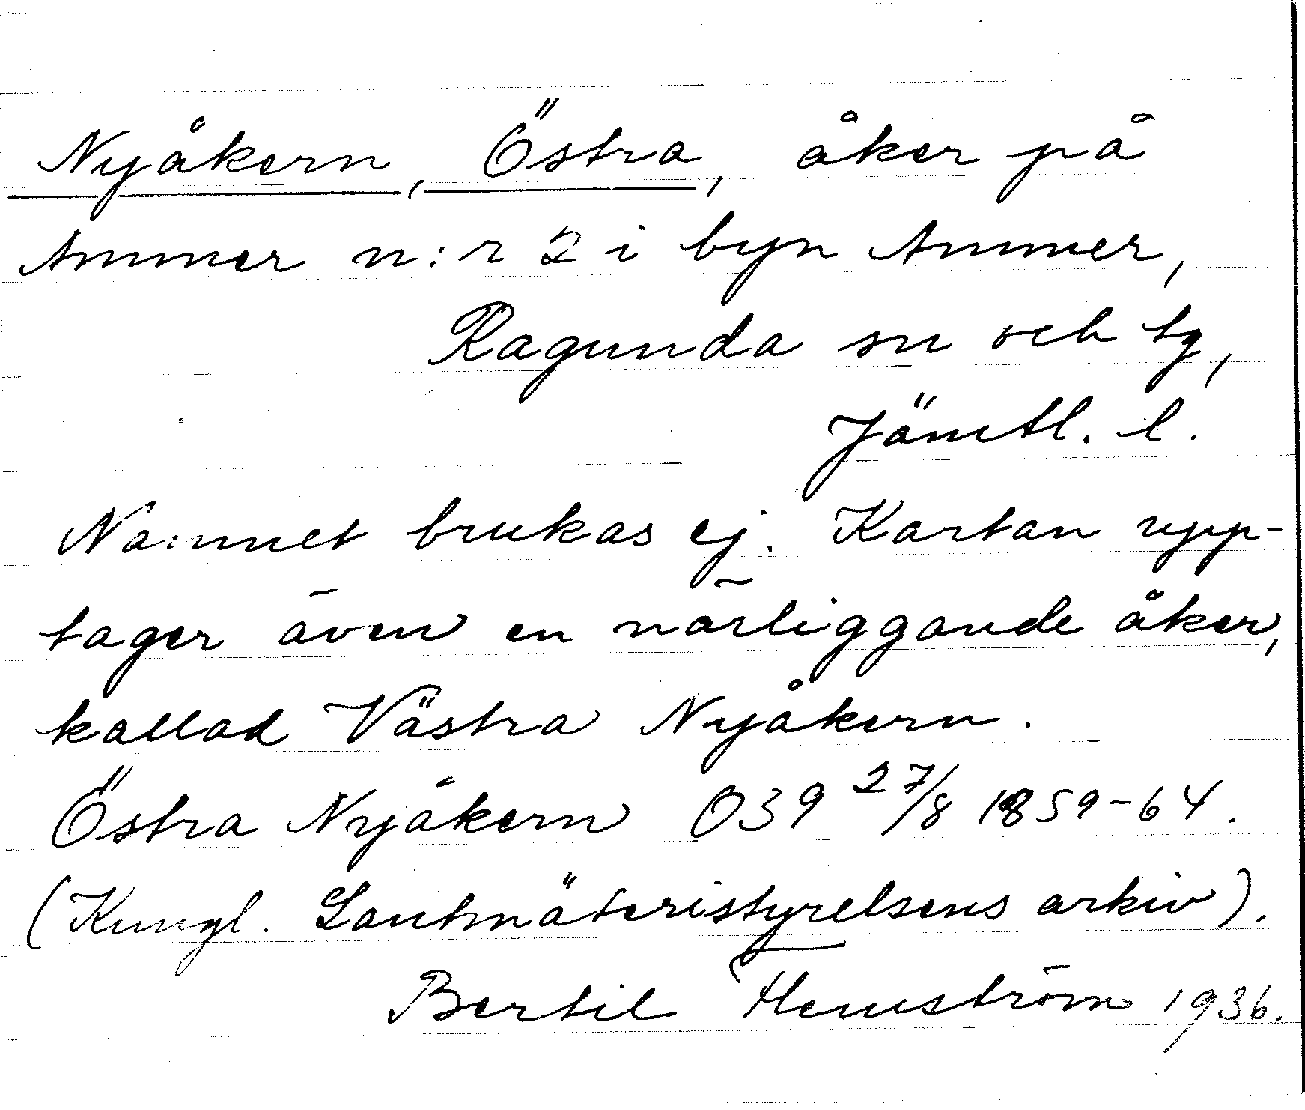 Nyåkern, Östra, åker på
Ammer n:r 2 i byn Ammer,
Ragunda sn och tg,
Jämtl. l.
Namnet brukas ej. Kartan upp-
tager även en närliggande åker,
kallad Västra Nyåkern.
Östra Nyåkern O39 27/8 1859-64.
(Kungl. Lantmäteristyrelsens arkiv).
Bertil Hemström 1936.